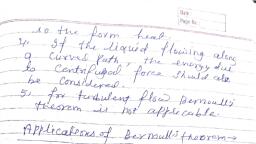 Date
Page No.
to the form heat
4. If the liquid flowing along
a curved path, the energy due
to centrifugal force should also
be considered.
5. for turbulent flow Bernoulli's
theorem is not applicable
Applications of Bernoulli's theorem→